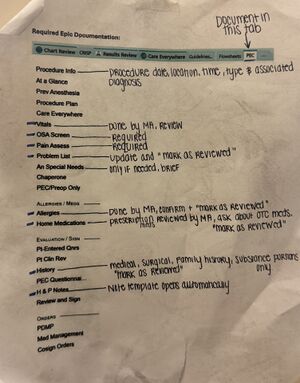 Document in this tab
Required Epic Documentation:
Chart Review CRISP Results Review Care Everywhere Guidelines... Flowsheets PEC
Procedure Info - procedure date, location, time, type & associated
diagnosis
At a Glance
Prev Anesthesia
Procedure Plan
Care Everywhere
Vitals - Done by MA, review
OSA Screen - Required
Pain Assess - Required
Problem List - update and "mark as reviewed"
An Special Needs - only if needed, brief
Chaperone
PEC/Preop Only
ALLERGIES / MEDS
Allergies - Done by MA, confirm + "mark as reviewed"
Home Medications - prescription meds reviewed by MA, ask about OTC meds.
"mark as reviewed"
EVALUATION / SIGN
Pt-Entered Qnrs
Pt Clin Rev
History - medical, surgical, family history, substance portions
only. "mark as reviewed"
PEC Questionnai...
H & P Notes - Note template opens automatically
Review and Sign
ORDERS
PDMP
Med Management
Cosign Orders